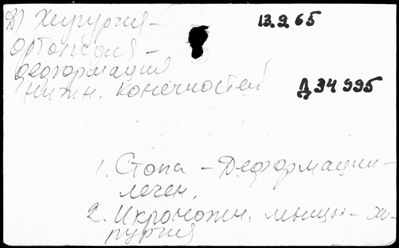 Д) Хирургия - 13.9.65
ортопедия -
деформация
нижн. конечностей
Д 34995
1. Стопа - Деформации -
лечен.
2. Икроножн. мышцы - хи-
рургия